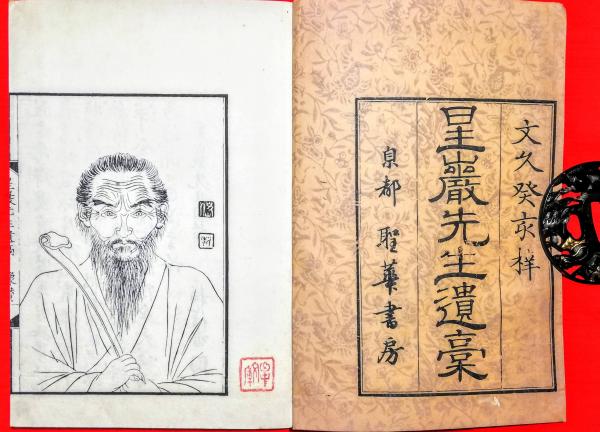 文久癸亥梓
星巖先生遺稾
京都 聖華書房